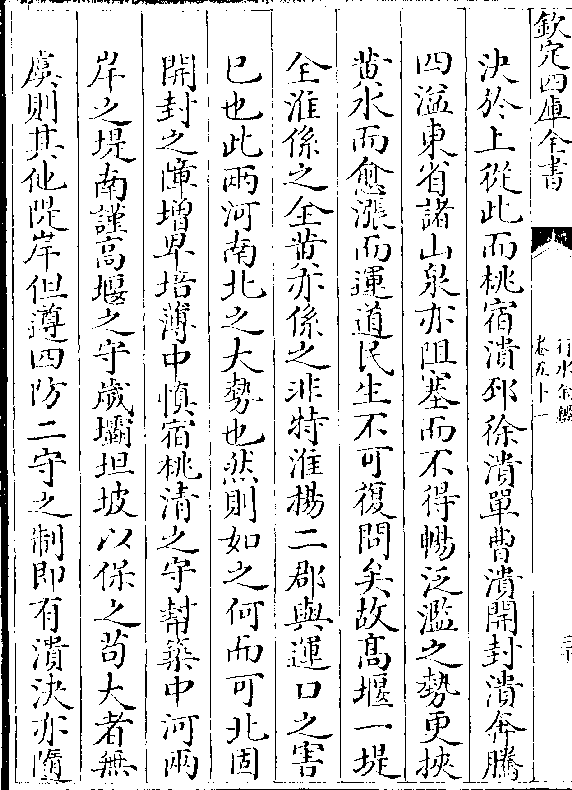 欽定四庫全書
行水金鑑
卷五十一
決於上從此而桃宿潰邳徐潰單曹潰開封潰奔騰
四溢東省諸山泉亦阻塞而不得暢泛濫之勢更挾
黄水而愈漲而運道民生不可復問矣故髙堰一堤
全淮係之全黄亦係之非特淮楊二郡與運口之害
已也此兩河南北之大勢也然則如之何而可北固
開封之陣增卑培薄中慎宿桃清之守幫築中河兩
岸之堤南謹高堰之守歲壩坦坡以保之茍大者無
虞則其他隄岸但遵四防二守之制即有潰決亦隨